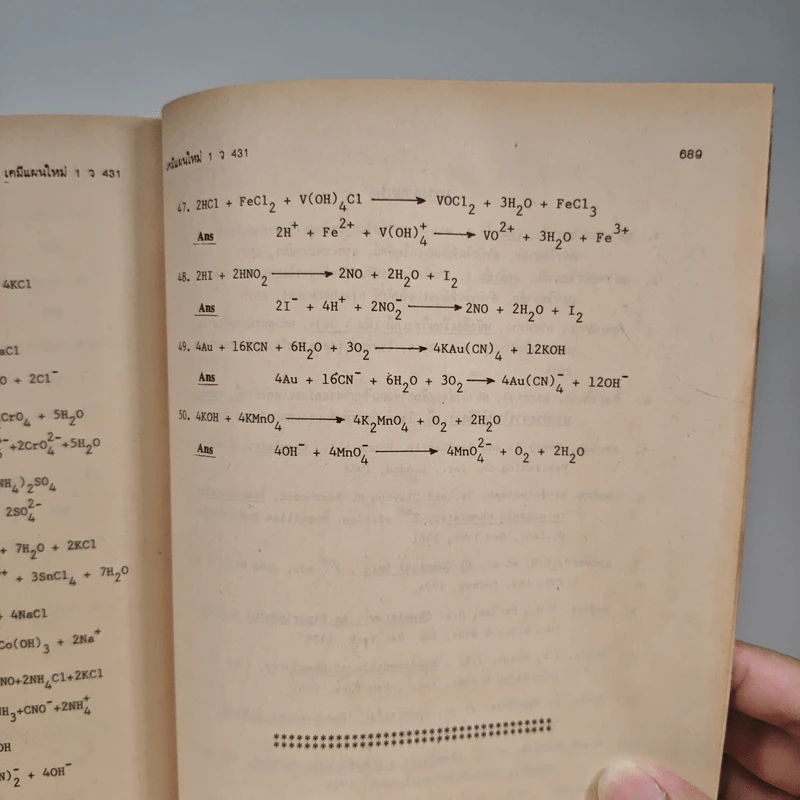 เคมีแผนใหม่ 1 ว 431
4KCl
aCl
O + 2Cl⁻
CrO₄ + 5H₂O
+2CrO₄²⁻+5H₂O
NH₄)₂SO₄
2SO₄²⁻
+ 7H₂O + 2KCl
+ 3SnCl₄ + 7H₂O
+ 4NaCl
Co(OH)₃ + 2Na⁺
NO+2NH₄Cl+2KCl
NH₃+CNO⁻+2NH₄⁺
OH
N)₂⁻ + 4OH⁻
เคมีแผนใหม่ 1 ว 431 689
47. 2HCl + FeCl₂ + V(OH)₄Cl ⟶ VOCl₂ + 3H₂O + FeCl₃
Ans 2H⁺ + Fe²⁺ + V(OH)₄⁺ ⟶ VO²⁺ + 3H₂O + Fe³⁺
48. 2HI + 2HNO₂ ⟶ 2NO + 2H₂O + I₂
Ans 2I⁻ + 4H⁺ + 2NO₂⁻ ⟶ 2NO + 2H₂O + I₂
49. 4Au + 16KCN + 6H₂O + 3O₂ ⟶ 4KAu(CN)₄ + 12KOH
Ans 4Au + 16CN⁻ + 6H₂O + 3O₂ ⟶ 4Au(CN)₄⁻ + 12OH⁻
50. 4KOH + 4KMnO₄ ⟶ 4K₂MnO₄ + O₂ + 2H₂O
Ans 4OH⁻ + 4MnO₄⁻ ⟶ 4MnO₄²⁻ + O₂ + 2H₂O